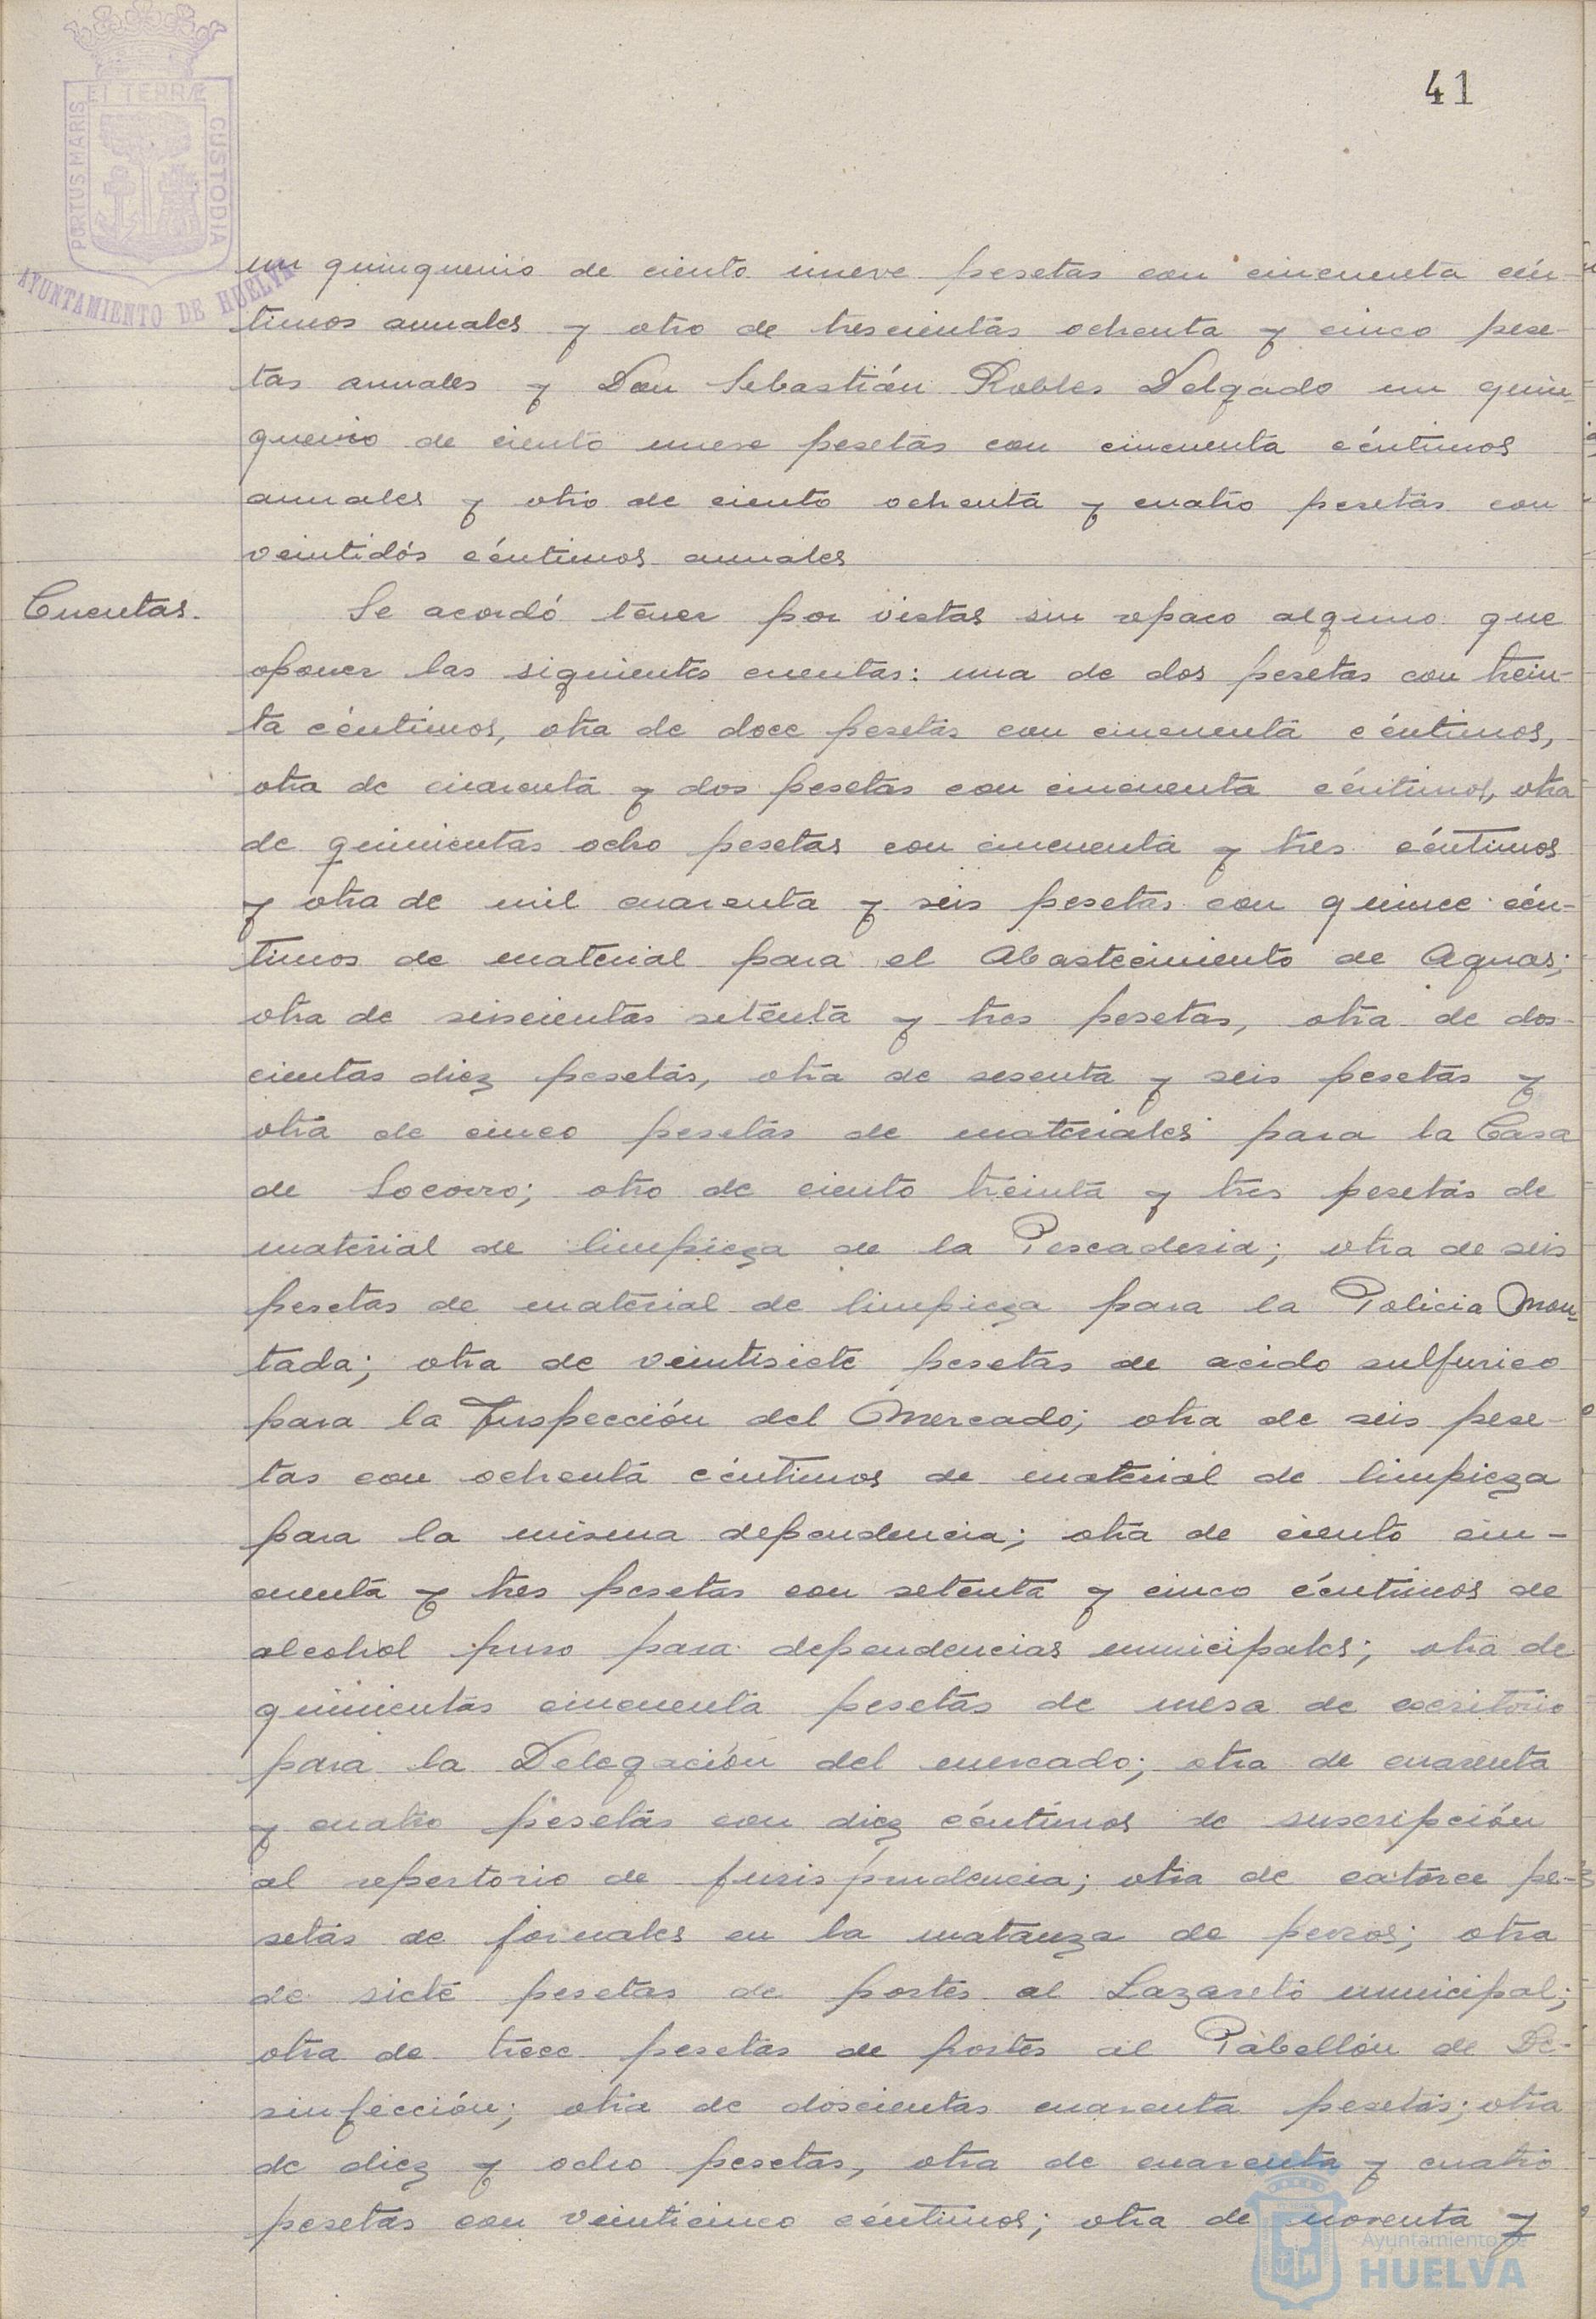 41
PORTUS MARIS ET TERRÆ CUSTODIA
AYUNTAMIENTO DE HUELVA
un quinquenio de ciento nueve pesetas con cincuenta cén-
timos anuales y otro de trescientas ochenta y cinco pese-
tas anuales y Don Sebastián Robles Delgado un quin-
quenio de ciento nueve pesetas con cincuenta céntimos
anuales y otro de ciento ochenta y cuatro pesetas con
veintidós céntimos anuales
Cuentas.
Se acordó tener por vistas sin reparo alguno que
oponer las siguientes cuentas: una de dos pesetas con trein-
ta céntimos, otra de doce pesetas con cincuenta céntimos,
otra de cuarenta y dos pesetas con cincuenta céntimos, otra
de quinientas ocho pesetas con cincuenta y tres céntimos
y otra de mil cuarenta y seis pesetas con quince cén-
timos de material para el Abastecimiento de Aguas;
otra de seiscientas setenta y tres pesetas, otra de dos-
cientas diez pesetas, otra de sesenta y seis pesetas y
otra de cinco pesetas de materiales para la Casa
de Socorro; otro de ciento treinta y tres pesetas de
material de limpieza de la Pescaderia; otra de seis
pesetas de material de limpieza para la Policia Mon-
tada; otra de veintisiete pesetas de acido sulfurico
para la Inspección del Mercado; otra de seis pese-
tas con ochenta céntimos de material de limpieza
para la misma dependencia; otra de ciento cin-
cuenta y tres pesetas con setenta y cinco céntimos de
alcohol puro para dependencias municipales; otra de
quinientas cincuenta pesetas de mesa de escritorio
para la Delegación del mercado; otra de cuarenta
y cuatro pesetas con diez céntimos de suscripción
al repertorio de jurisprudencia; otra de catorce pe-
setas de jornales en la matanza de perros; otra
de siete pesetas de portes al Lazareto municipal;
otra de trece pesetas de portes al Pabellón de De-
sinfección; otra de doscientas cuarenta pesetas; otra
de diez y ocho pesetas, otra de cuarenta y cuatro
pesetas con veinticinco céntimos; otra de noventa y
Ayuntamiento de
HUELVA